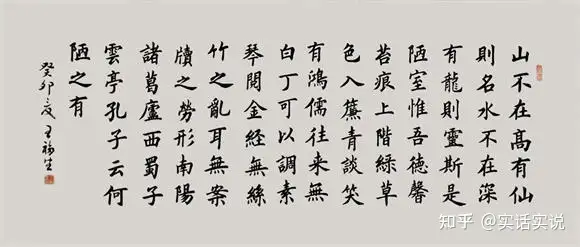 山不在髙有仙
則名水不在深
有龍則靈斯是
陋室惟吾德馨
苔痕上階緑草
色入簾青談笑
有鴻儒往来無
白丁可以調素
琴閱金経無絲
竹之亂耳無案
牘之勞形南陽
諸葛廬西蜀子
雲亭孔子云何
陋之有
癸卯夏王福生
知乎 @实话实说